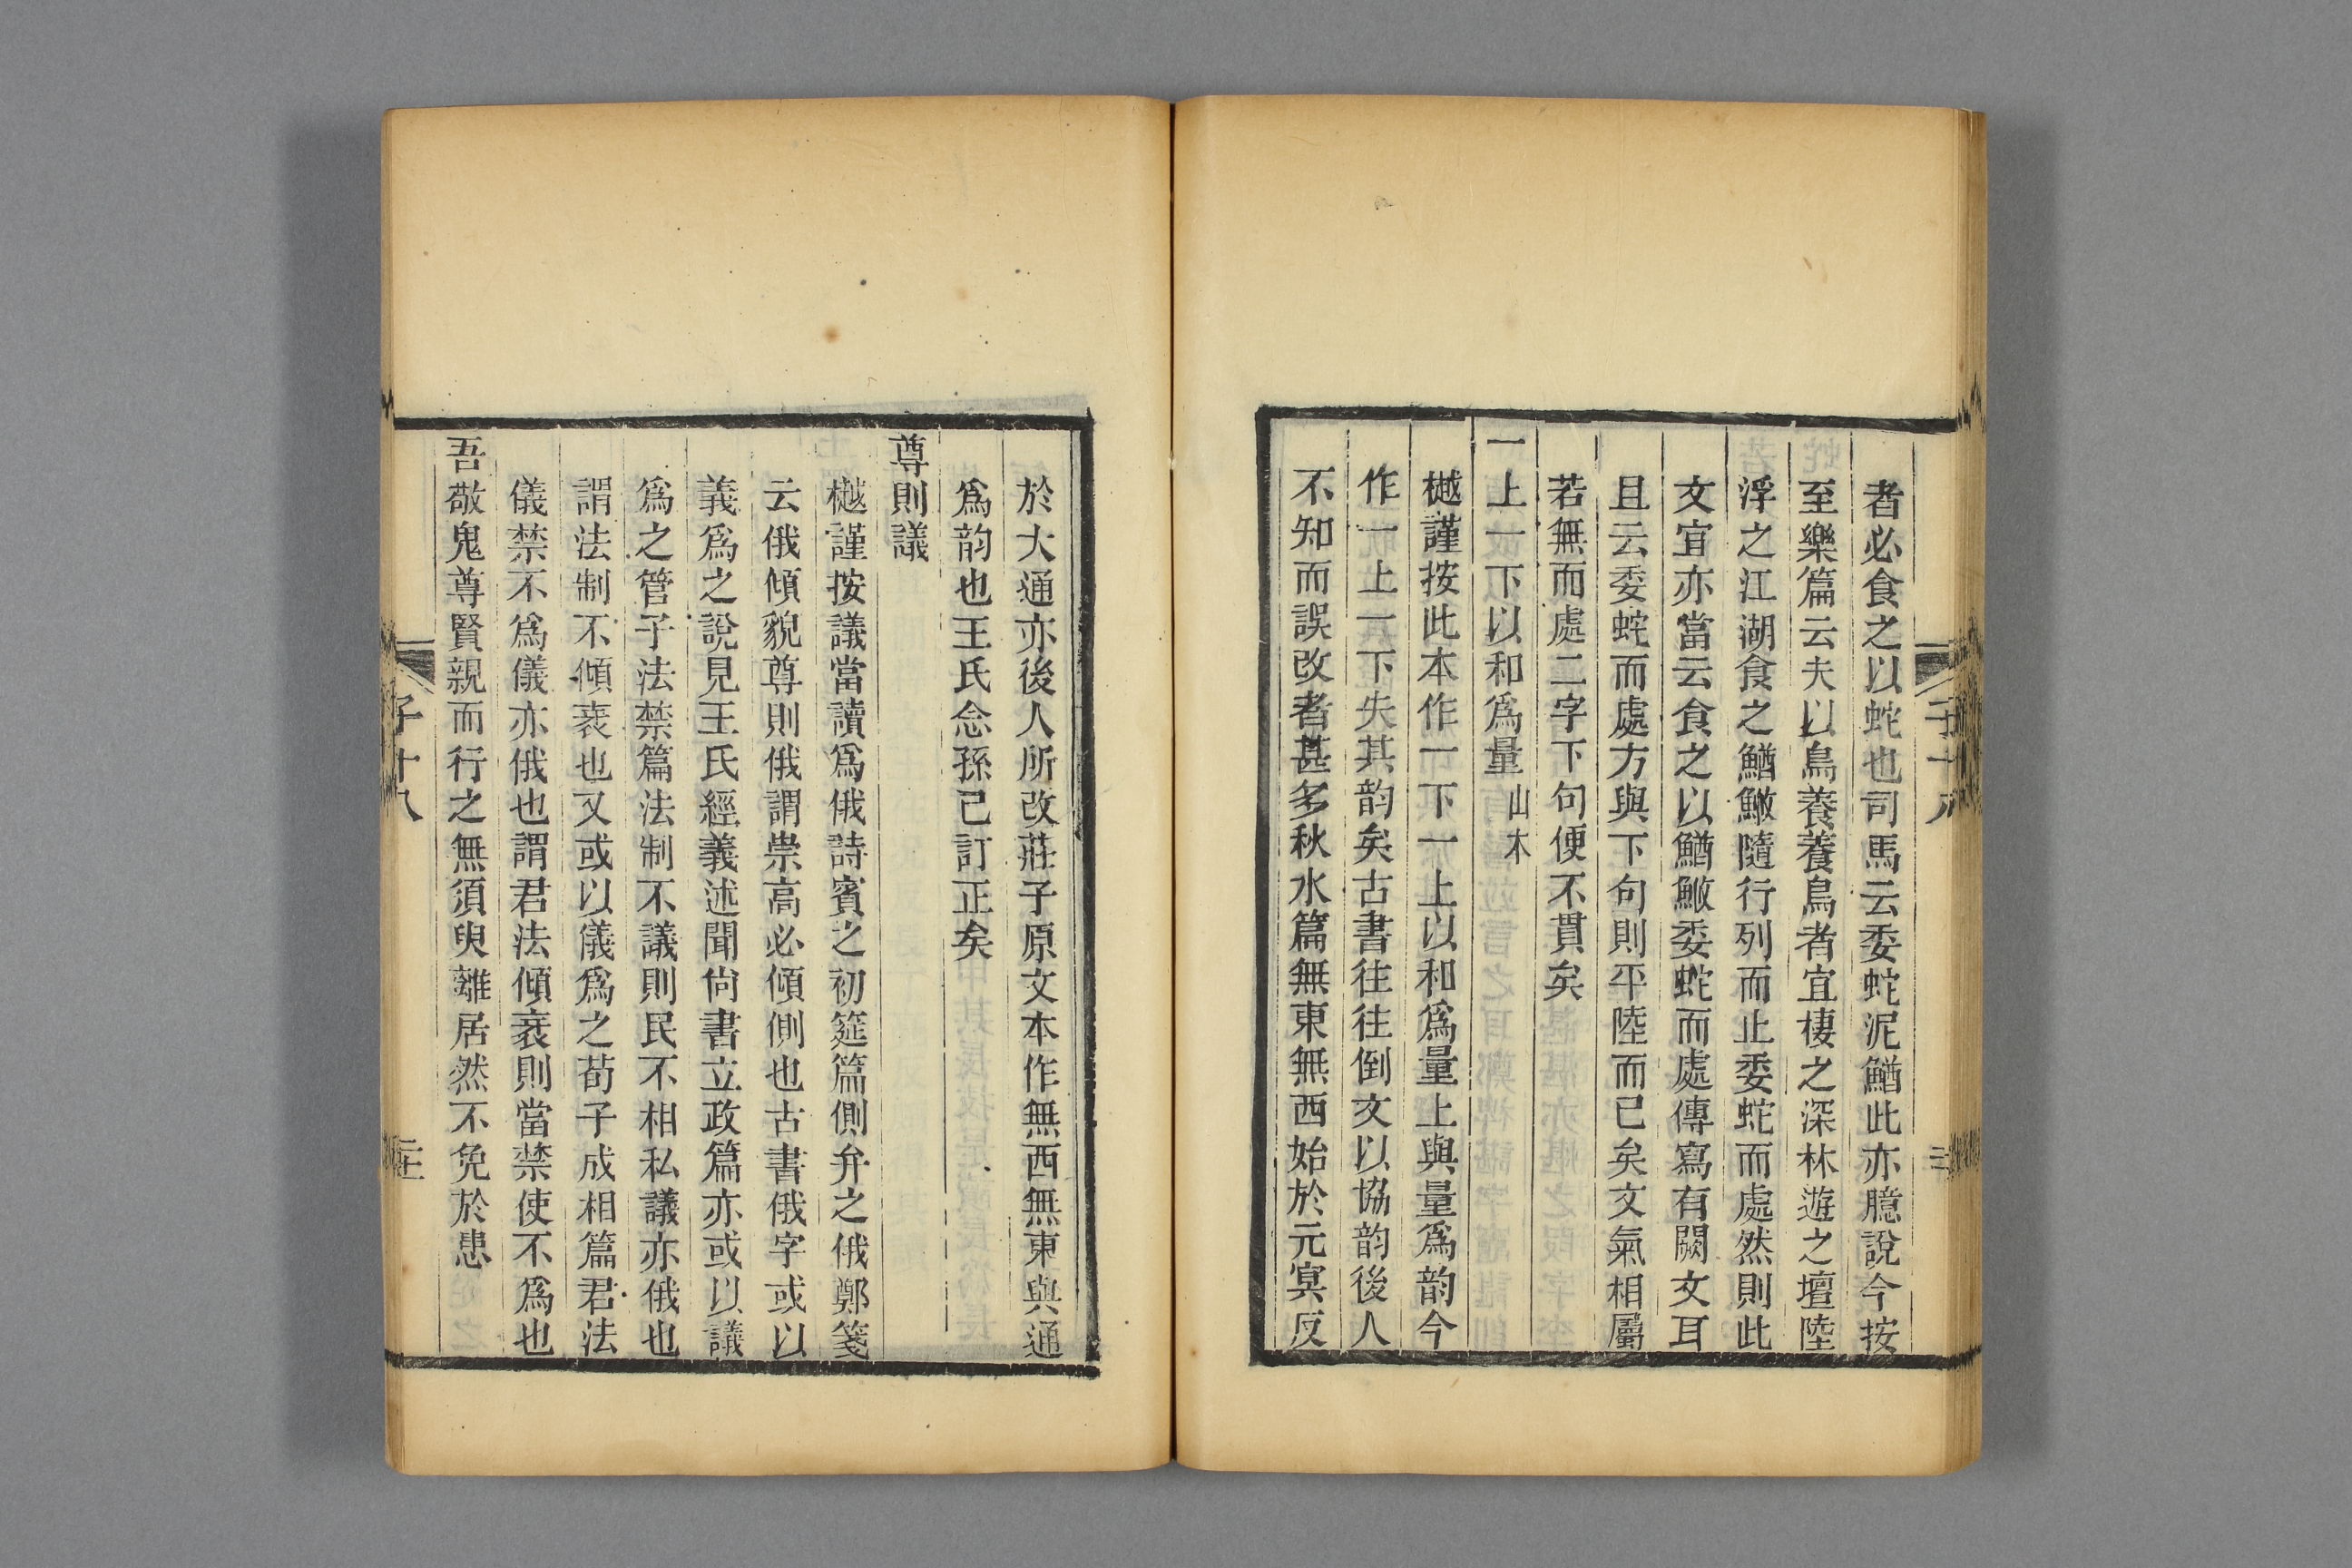 者必食之以蛇也司馬云委蛇泥鰌此亦臆說今按
至樂篇云夫以鳥養養鳥者宜棲之深林遊之壇陸
浮之江湖食之鰌䱔隨行列而止委蛇而處然則此
文宜亦當云食之以鰌䱔委蛇而處傳寫有闕文耳
且云委蛇而處方與下句則平陸而已矣文氣相屬
若無而處二字下句便不貫矣
一上一下以和爲量山木
樾謹按此本作一下一上以和爲量上與量爲韵今
作一上一下失其韵矣古書往往倒文以協韵後人
不知而誤改者甚多秋水篇無東無西始於元冥反
於大通亦後人所改莊子原文本作無西無東與通
爲韵也王氏念孫已訂正矣
尊則議
樾謹按議當讀爲俄詩賓之初筵篇側弁之俄鄭箋
云俄傾貌尊則俄謂崇高必傾側也古書俄字或以
義爲之說見王氏經義述聞尙書立政篇亦或以議
爲之管子法禁篇法制不議則民不相私議亦俄也
謂法制不傾衺也又或以儀爲之荀子成相篇君法
儀禁不爲儀亦俄也謂君法傾衺則當禁使不爲也
吾敬鬼尊賢親而行之無須臾離居然不免於患
子十八